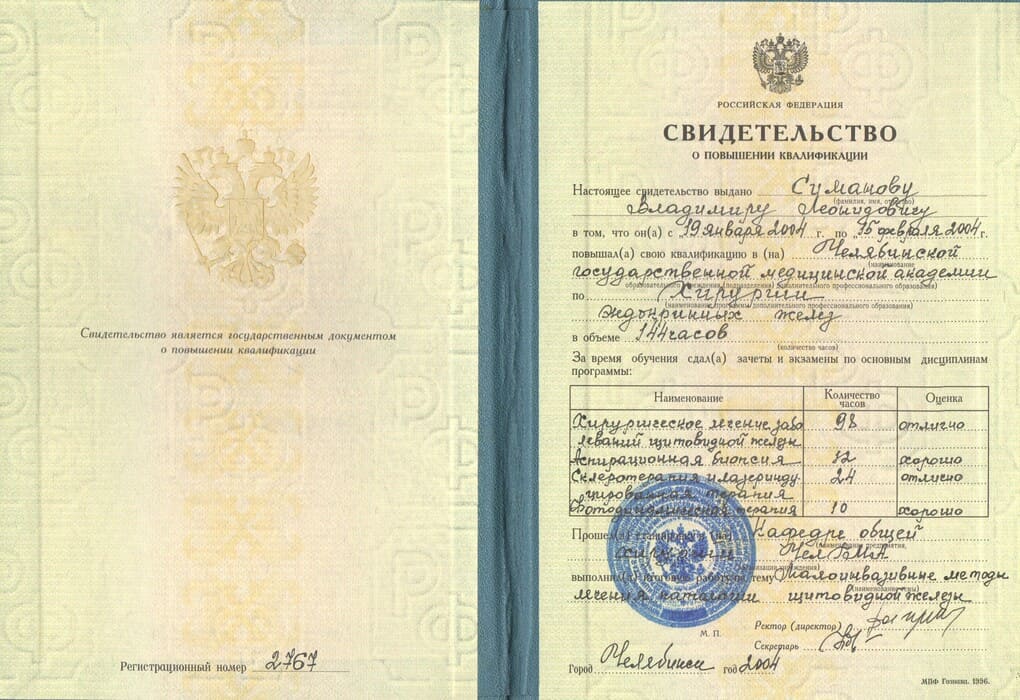 Свидетельство является государственным документом
о повышении квалификации
Регистрационный номер 2767
РОССИЙСКАЯ ФЕДЕРАЦИЯ
СВИДЕТЕЛЬСТВО
О ПОВЫШЕНИИ КВАЛИФИКАЦИИ
Настоящее свидетельство выдано Суманову
(фамилия, имя, отчество)
Владимиру Леонидовичу
в том, что он(а) с 19 января 2004 г. по 15 февраля 2004 г.
повышал(а) свою квалификацию в (на) Челябинской
(наименование
государственной медицинской академии
образовательного учреждения (подразделения) дополнительного профессионального образования)
по Хирургии
(наименование программы дополнительного профессионального образования)
эндокринных желез
в объеме 144 часов
(количество часов)
За время обучения сдал(а) зачеты и экзамены по основным дисциплинам
программы:
Наименование Количество часов Оценка
Хирургическое лечение забо 98 отлично
леваний щитовидной железы
Аспирационная биопсия 12 хорошо
Склеротерапия и лазериндуу- 24 отлично
цированная терапия
Фотодинамическая терапия 10 хорошо
Прошел(а) стажировку в (на) Кафедре общей
(наименование предприятия,
хирургии ЧелГМА
организации, учреждения)
выполнил(а) итоговую работу на тему Малоинвазивные методы
(наименование темы)
лечения патологии щитовидной железы
Ректор (директор)
М. П.
Секретарь
Город Челябинск год 2004
МПФ Гознака. 1996.